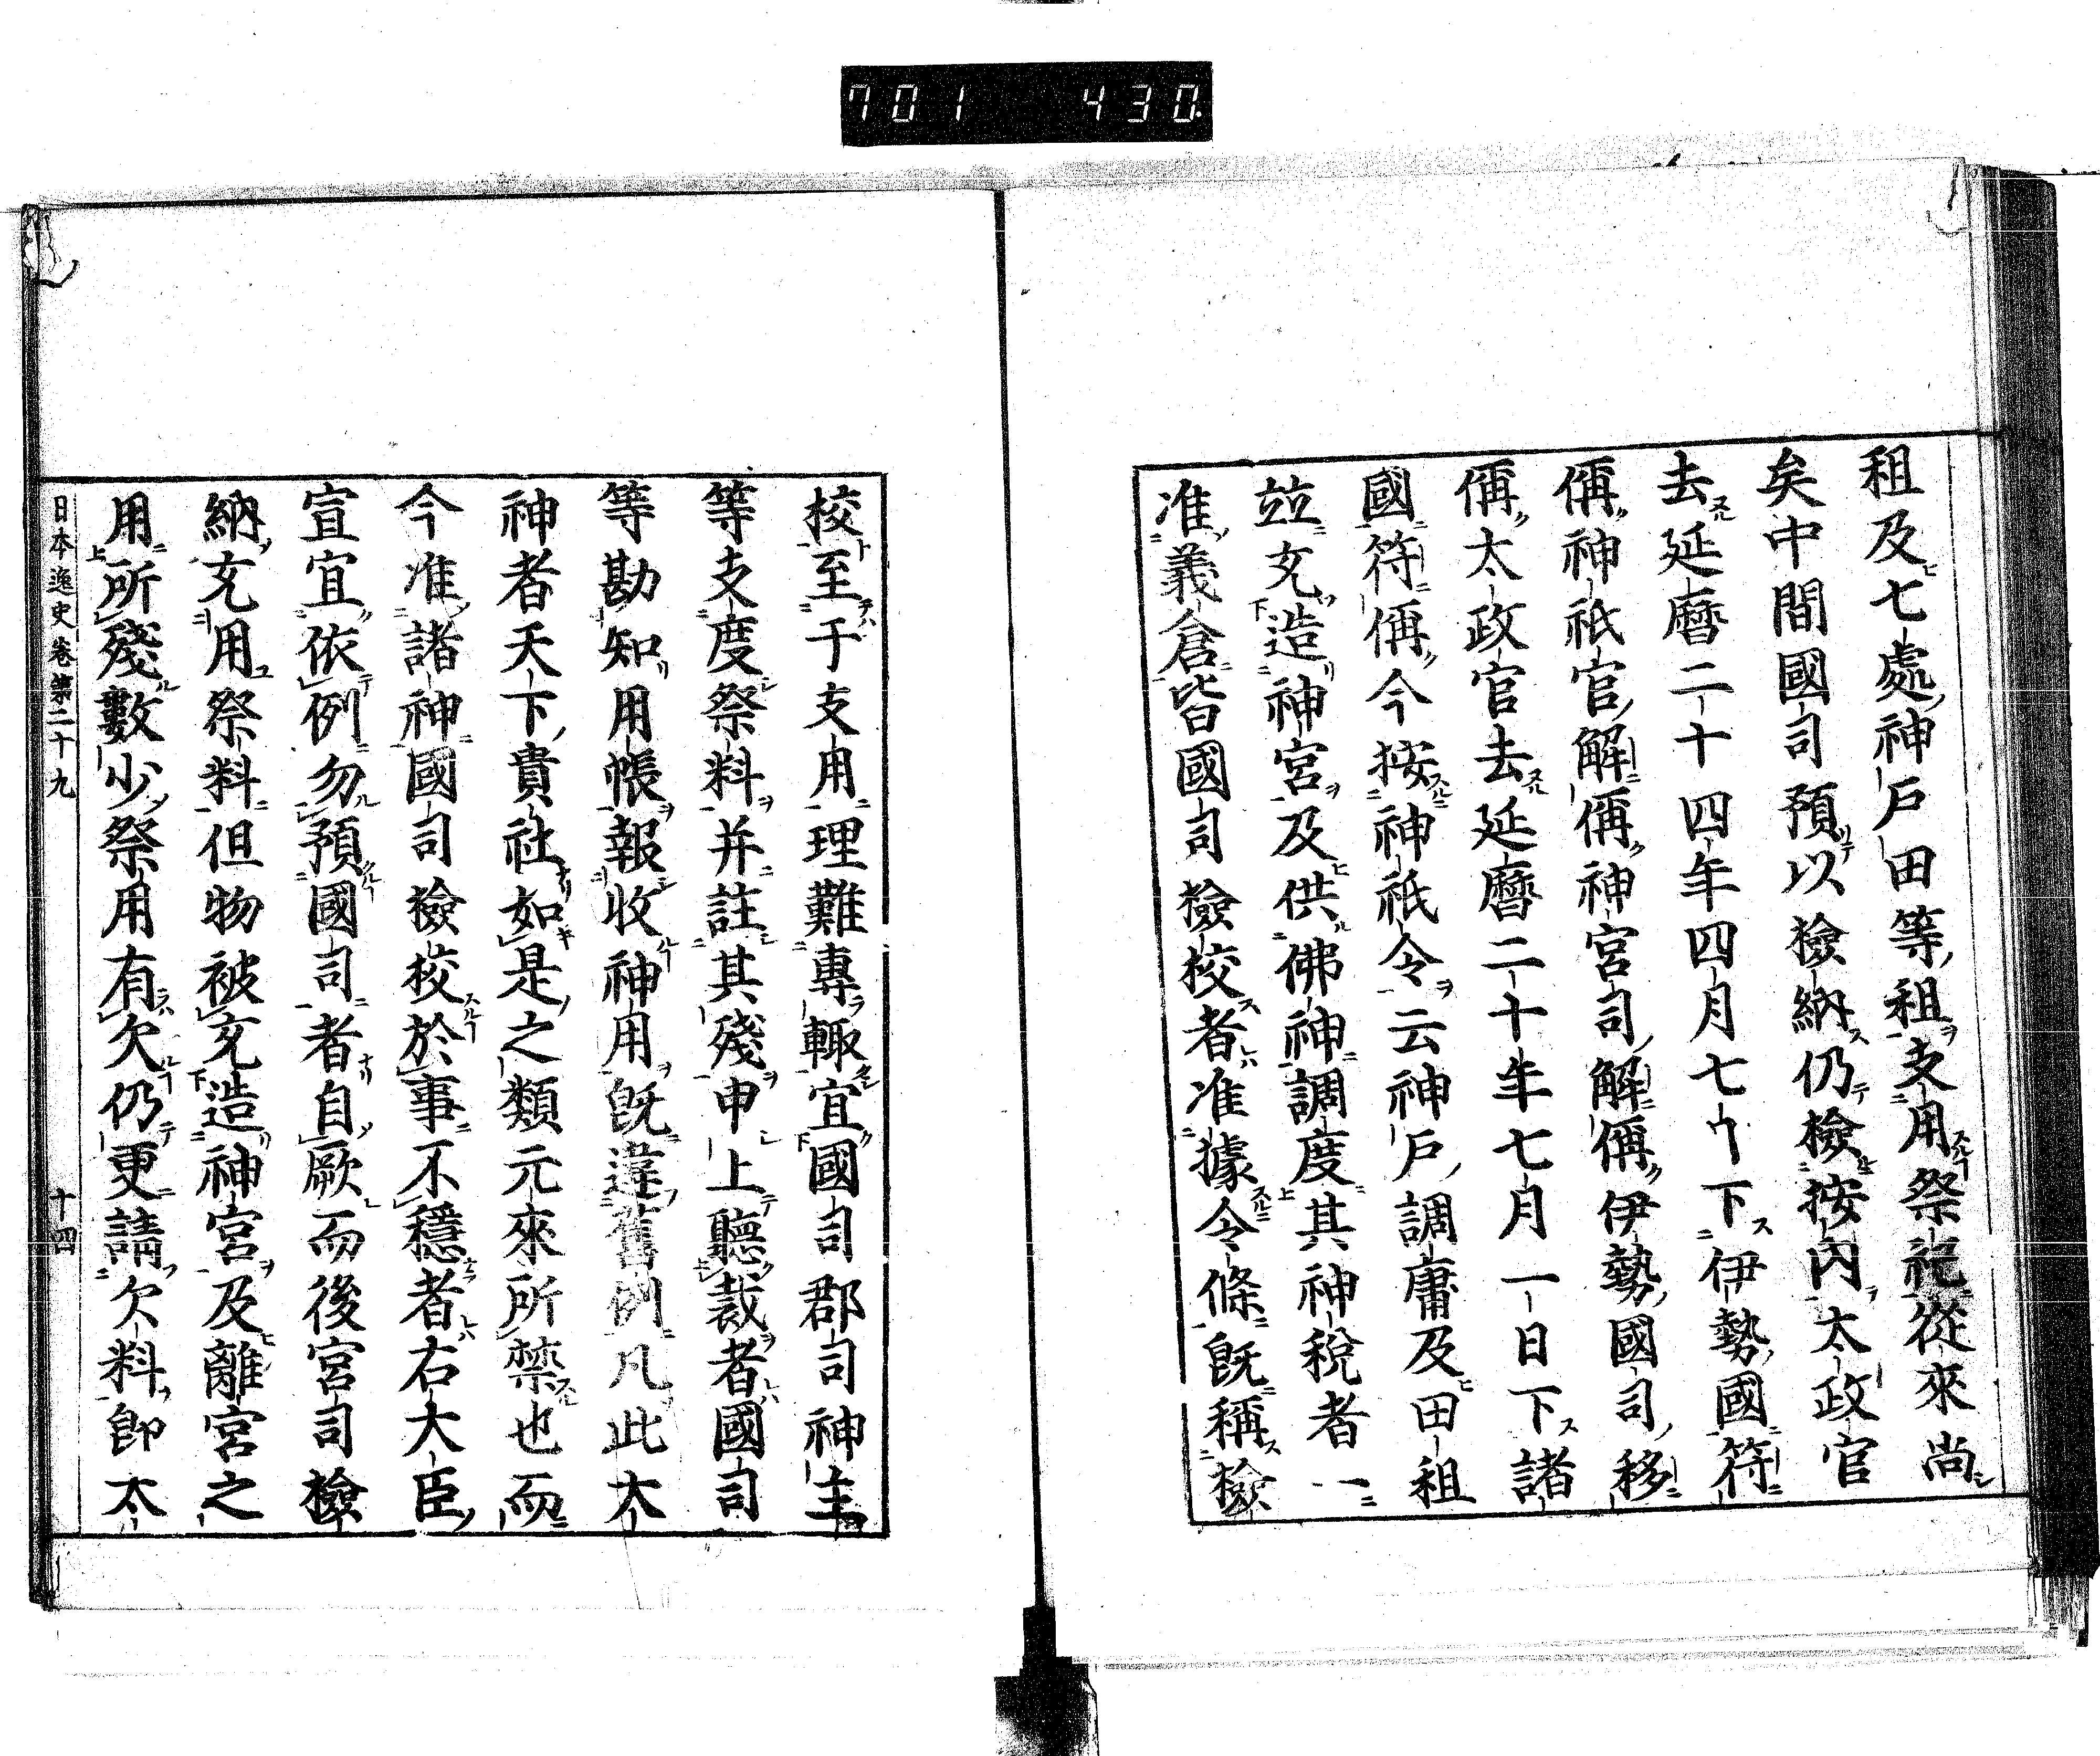 701 430
租及七處神戸田等租支用祭祀從來尚
矣中間國司預以撿納仍撿按內太政官
去延曆二十四年四月七日下伊勢國符
偁神祇官解偁神宮司解偁伊勢國司移
偁太政官去延曆二十年七月一日下諸
國符偁今按神祇令云神戸調庸及田租
並充造神宮及供佛神調度其神稅者一
准義倉皆國司撿校者准據令條旣稱撿
校至于支用理難專輙宜國司郡司神主
等支度祭料并註其殘申上聽裁者國司
等勘知用帳報收神用旣違舊例凡此太
神者天下貴社如是之類元來所禁也而
今准諸神國司撿校於事不穩者右大臣
宣宜依例勿預國司者自厥而後宮司撿
納充用祭料但物被充造神宮及離宮之
用所殘數少祭用有欠仍更請欠料卽太
日本逸史卷第二十九 十四